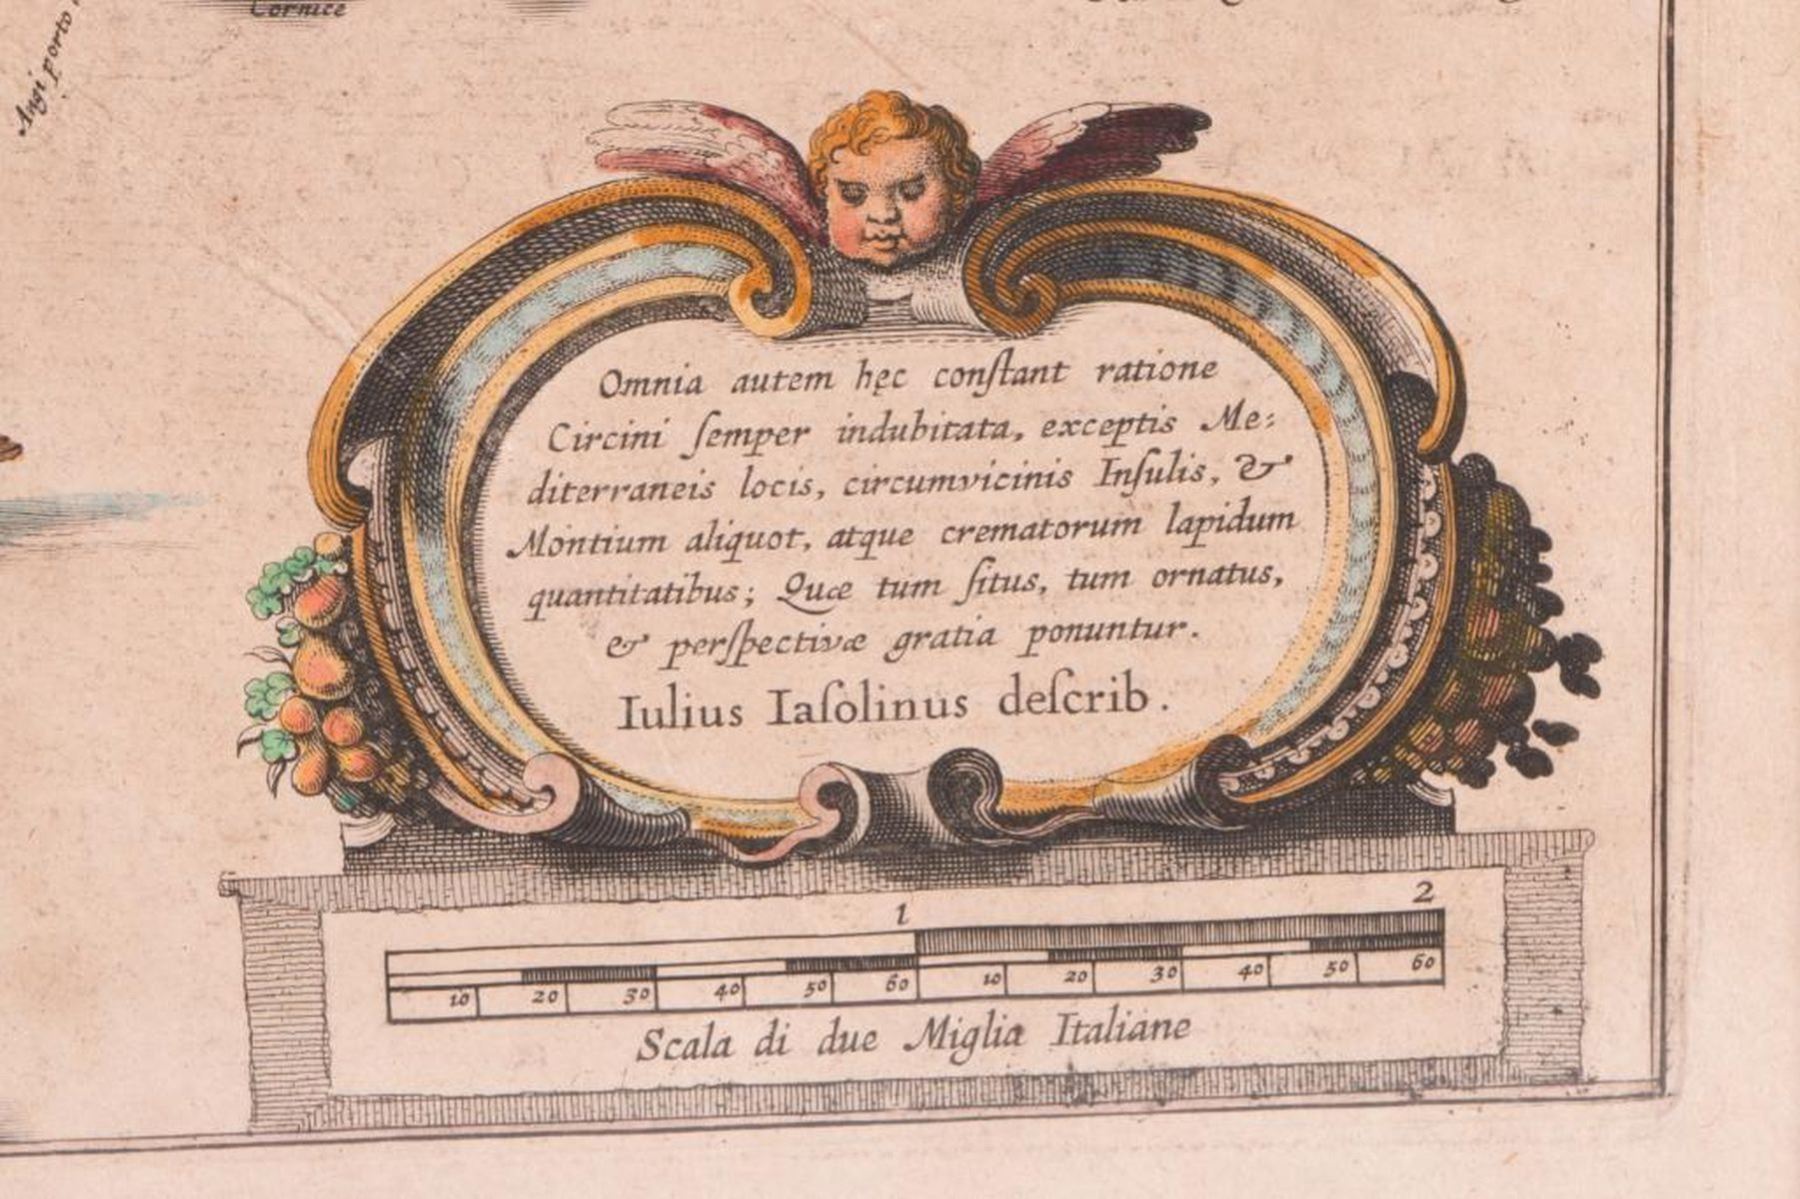 Cornice
Angi porto
Omnia autem hęc conſtant ratione
Circini ſemper indubitata, exceptis Me:
diterraneis locis, circumvicinis Inſulis, &
Montium aliquot, atque crematorum lapidum
quantitatibus; Quæ tum ſitus, tum ornatus,
& perſpectivæ gratia ponuntur.
Iulius Iaſolinus deſcrib.
1 2
10 20 30 40 50 60 10 20 30 40 50 60
Scala di due Miglia Italiane